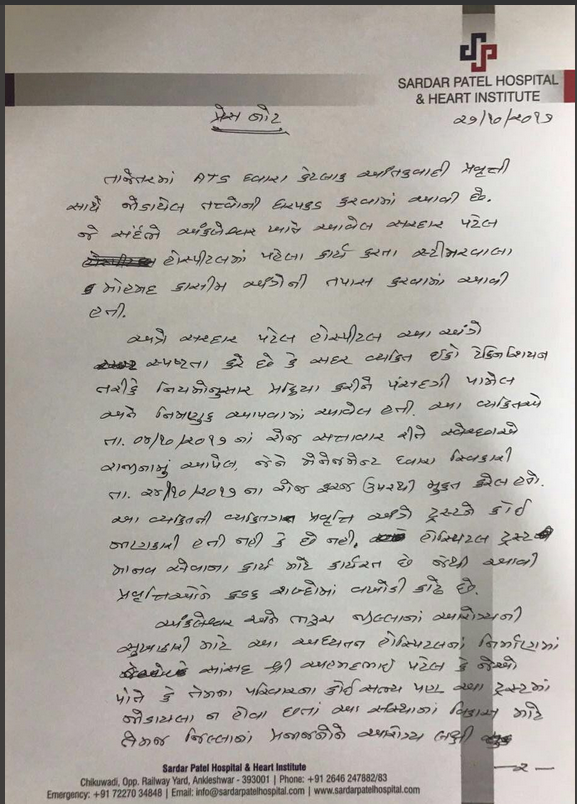 SARDAR PATEL HOSPITAL
& HEART INSTITUTE
પ્રેસ નોટ
૨૭/૧૦/૨૦૧૭
તાજેતરમાં ATS દ્વારા કેટલાક આતંકવાદી પ્રવૃત્તી
સાથે જોડાયેલ તત્વોની ધરપકડ કરવામાં આવી છે.
જે સંદર્ભે અંકલેશ્વર ખાતે આવેલ સરદાર પટેલ
હોસ્પીટલમાં પહેલા કાર્ય કરતા સ્ટીમરવાલા
મોહમદ કાસીમ અંગેની તપાસ કરવામાં આવી
હતી.
અત્રે સરદાર પટેલ હોસ્પીટલ આ અંગે
સ્પષ્ટતા કરે છે કે સદર વ્યકિત ઈકો ટેકનિશિયન
તરીકે નિયમોનુસાર પ્રક્રિયા કરીને પંસદગી પામેલ
અને નિમણુક આપવામાં આવેલ હતી. આ વ્યકિતએ
તા. ૦૪/૧૦/૨૦૧૭ નાં રોજ સત્તાવાર રીતે સ્વેચ્છાએ
રાજીનામું આપેલ, જેને મેનેજમેન્ટ દ્વારા સ્વિકારી
તા. ૨૪/૧૦/૨૦૧૭ ના રોજ ફરજ ઉપરથી મુક્ત કરેલ હતો.
આ વ્યકિતની વ્યકિતગત પ્રવૃત્તિ અંગે ટ્રસ્ટને કોઈ
જાણકારી હતી નહી કે છે નહી. હોસ્પિટલ ટ્રસ્ટ
માનવ સેવાના કાર્ય માટે કાર્યરત છે જેથી આવી
પ્રવૃત્તિઓને કડક શબ્દોમાં વખોડી કાઢે છે.
અંકલેશ્વર અને ભરૂચ જીલ્લાનાં આરોગ્યની
સુખાકારી માટે આ અદ્યતન હોસ્પિટલનાં નિર્માણમાં
સાંસદ શ્રી અહમદભાઇ પટેલ કે જેઓ
પોતે કે તેમના પરિવારના કોઈ સભ્ય પણ આ ટ્રસ્ટમાં
જોડાયેલા ન હોવા છતાં આ સંસ્થાનાં વિકાસ માટે
તેમજ જિલ્લાનાં પ્રજાજનોને આરોગ્ય લક્ષી
—૨—
Sardar Patel Hospital & Heart Institute
Chikuwadi, Opp. Railway Yard, Ankleshwar - 393001 | Phone: +91 2646 247882/83
Emergency: +91 72270 34848 | Email: info@sardarpatelhospital.com | www.sardarpatelhospital.com